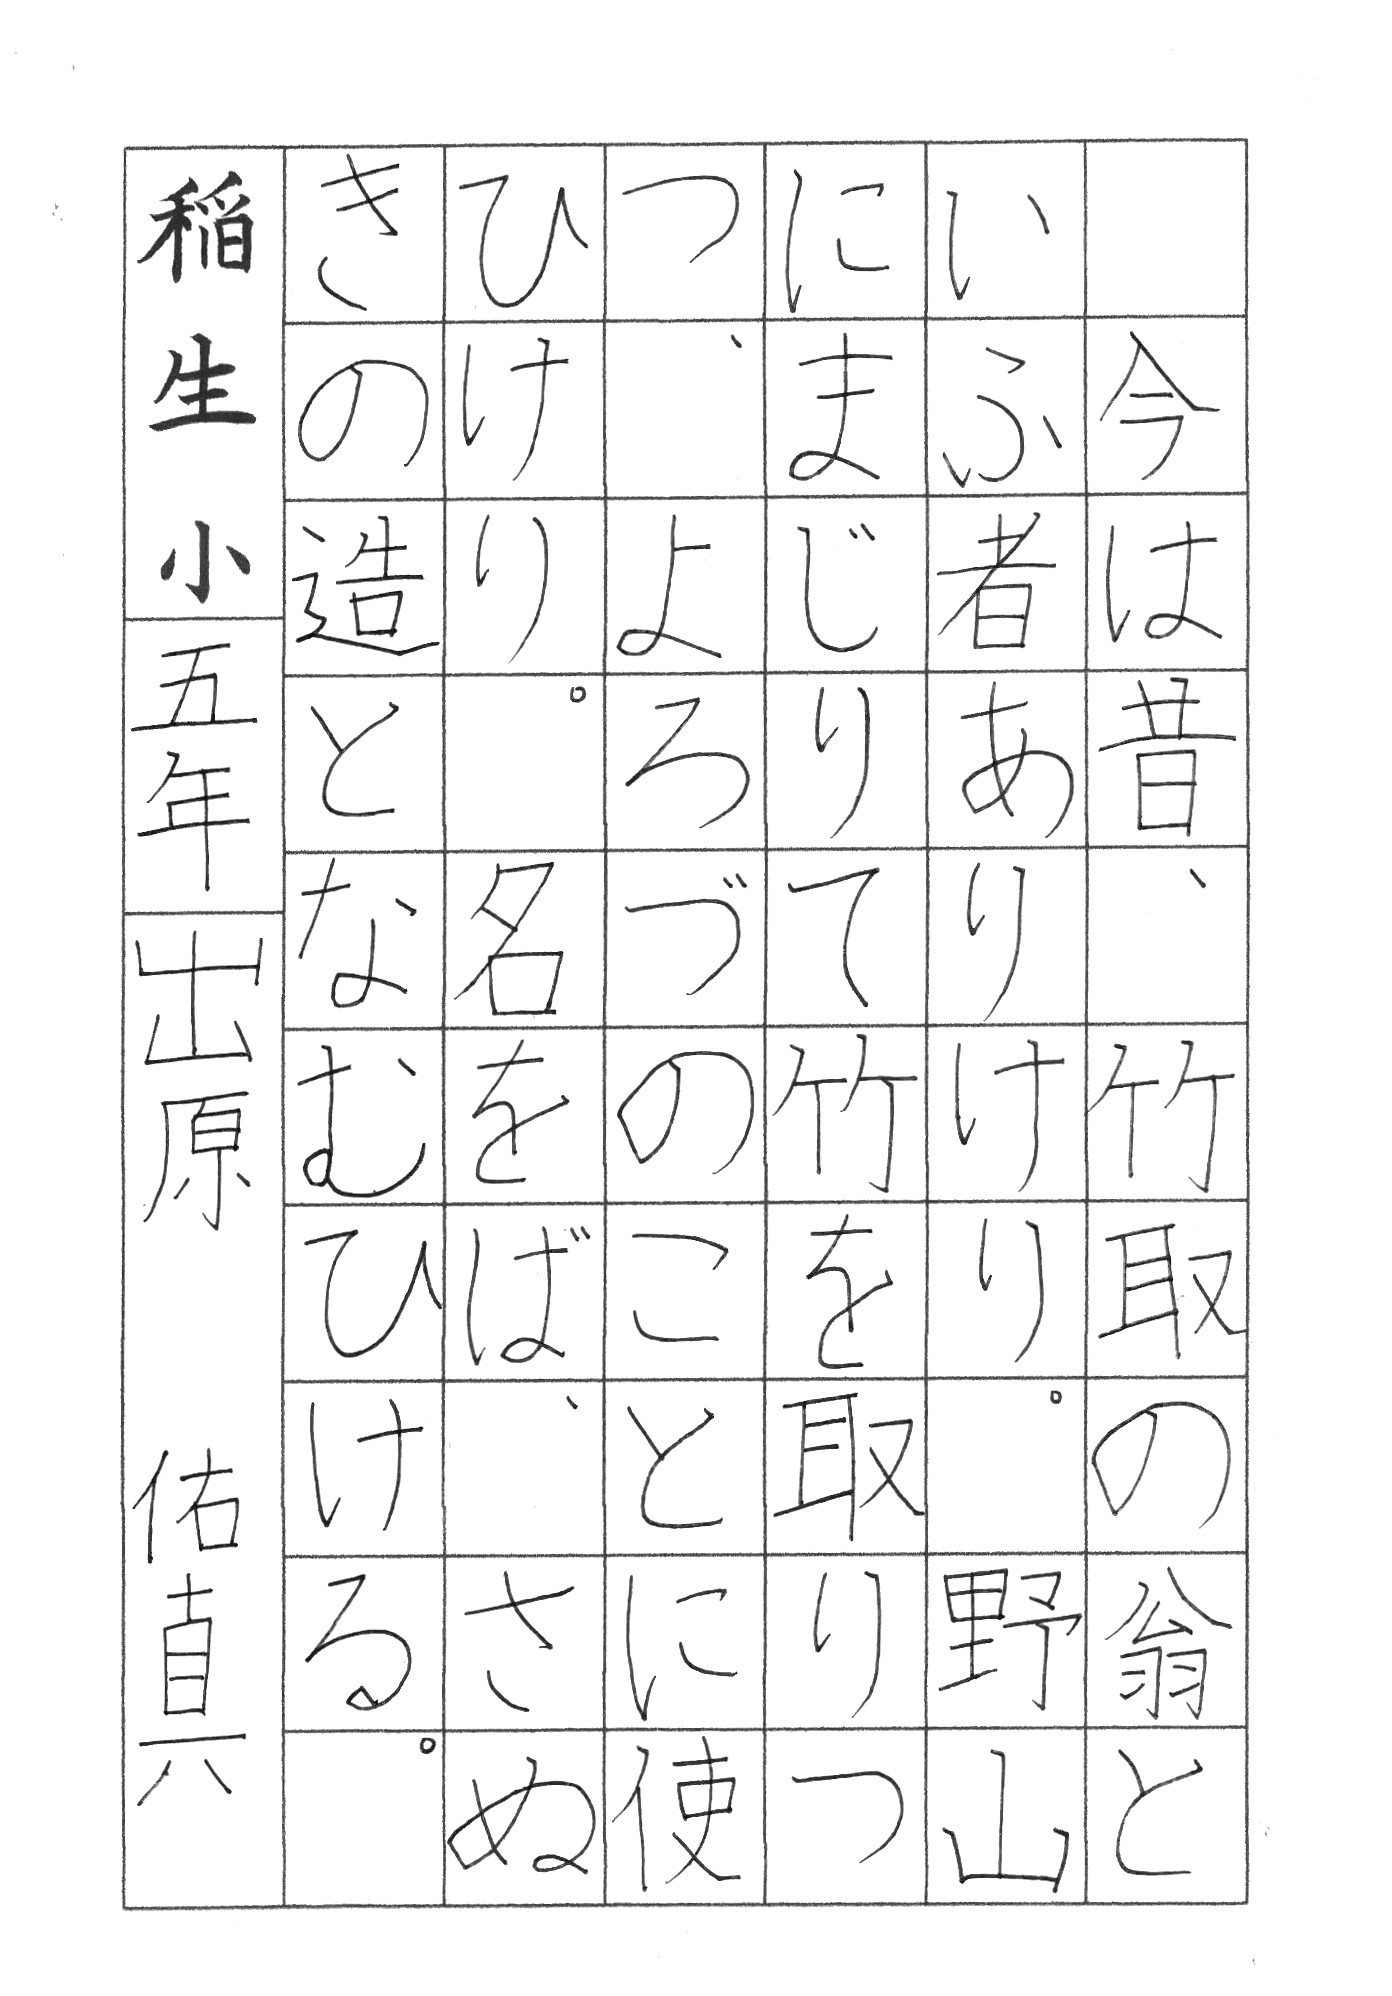 今は昔、竹取の翁と
いふ者ありけり。野山
にまじりて竹を取りつ
つ、よろづのことに使
ひけり。名をば、さぬ
きの造となむひける。
稲生小五年出原佑真